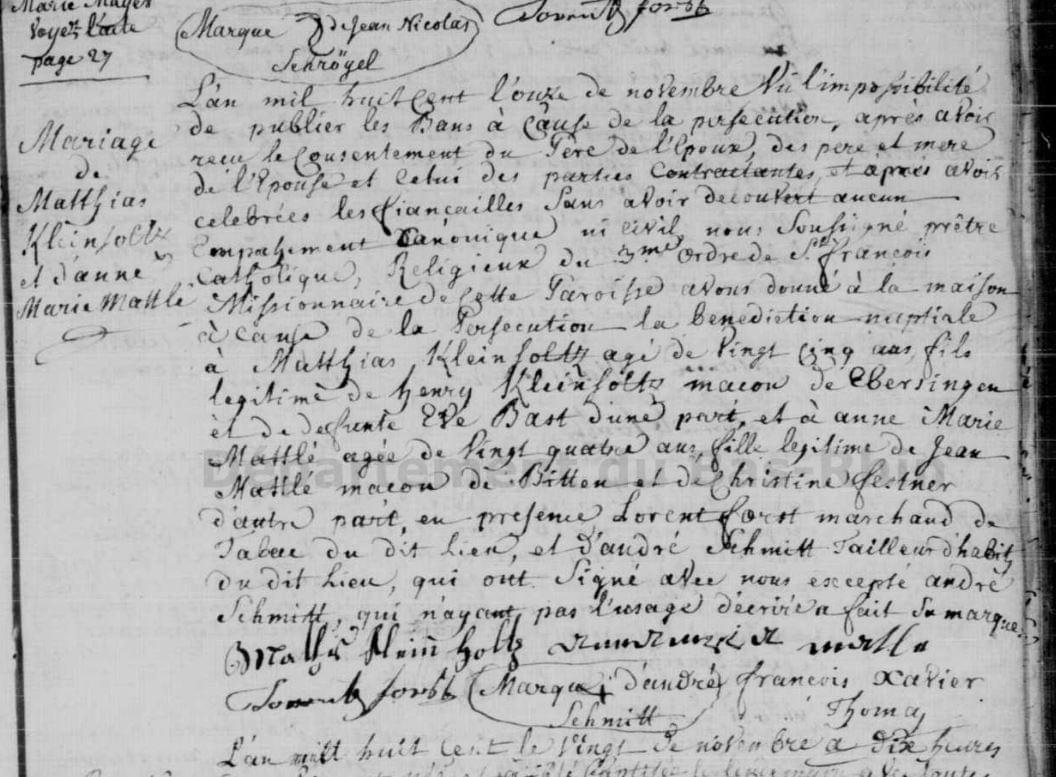 Marie Mayer
Voyez
page 27
Marque de Jean Nicolas
Schröyel
Lorentz forst
Mariage
de
Matthias
Kleinholtz
et d'anne
Marie Mattlé
L'an mil huit Cent l'onze de novembre Vu l'impossibilité
de publier les Bans à Cause de la persecution, après avoir
recu le Consentement du Pere de l'Epoux, des pere et mere
de l'Epouse et Celui des parties Contractantes, et après avoir
celebrées les fiançailles Sans avoir decouvert aucun
Empechement Canonique ni Civil, nous Soussigné prêtre
Catholique, Religieux du 3me Ordre de St. françois
Missionnaire de Cette Paroisse avons donné à la maison
à Cause de la Persecution la benediction nuptiale
à Matthias Kleinholtz agé de Vingt Cinq ans, fils
legitime de henry Kleinholtz macon de Ebersingen
et de defunte Eve Bast d'une part, et à anne Marie
Mattlé agée de Vingt quatre ans, fille legitime de Jean
Mattlé macon de Bitten et de Christine festner
d'autre part, en presence Lorent forst marchand de
Tabac du dit Lieu, et d'andré Schmitt Tailleur d'habit
du dit Lieu, qui ont Signé avec nous excepté andré
Schmitt, qui n'ayant pas l'usage décrire a fait Sa marque.
Mathis Klein holtz mattle
Lorentz forst Marque d'andré françois Xavier
Schmitt Thomas
L'an mill huit Cent le Vingt de novembre a dix heures
Département du Bas-Rhin